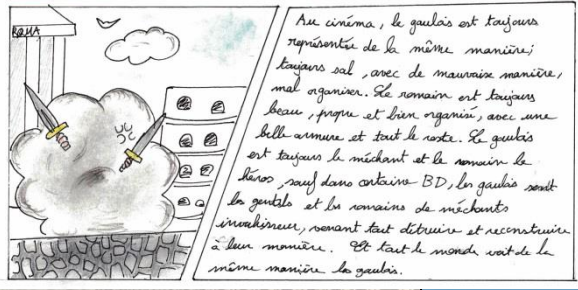 ROMA
Au cinéma, le gaulois est toujours
représentée de la même manière;
toujours sal, avec de mauvaise manière,
mal organiser. Le romain est toujours
beau, propre et bien organisé, avec une
belle armure et tout le reste. Le gaulois
est toujours le méchant et le romain le
héros, sauf dans certaine BD, les gaulois sont
les gentils et les romains de méchants
invahisseur, venant tout détruire et reconstruire
à leur manière. Et tout le monde voit de la
même manière les gaulois.